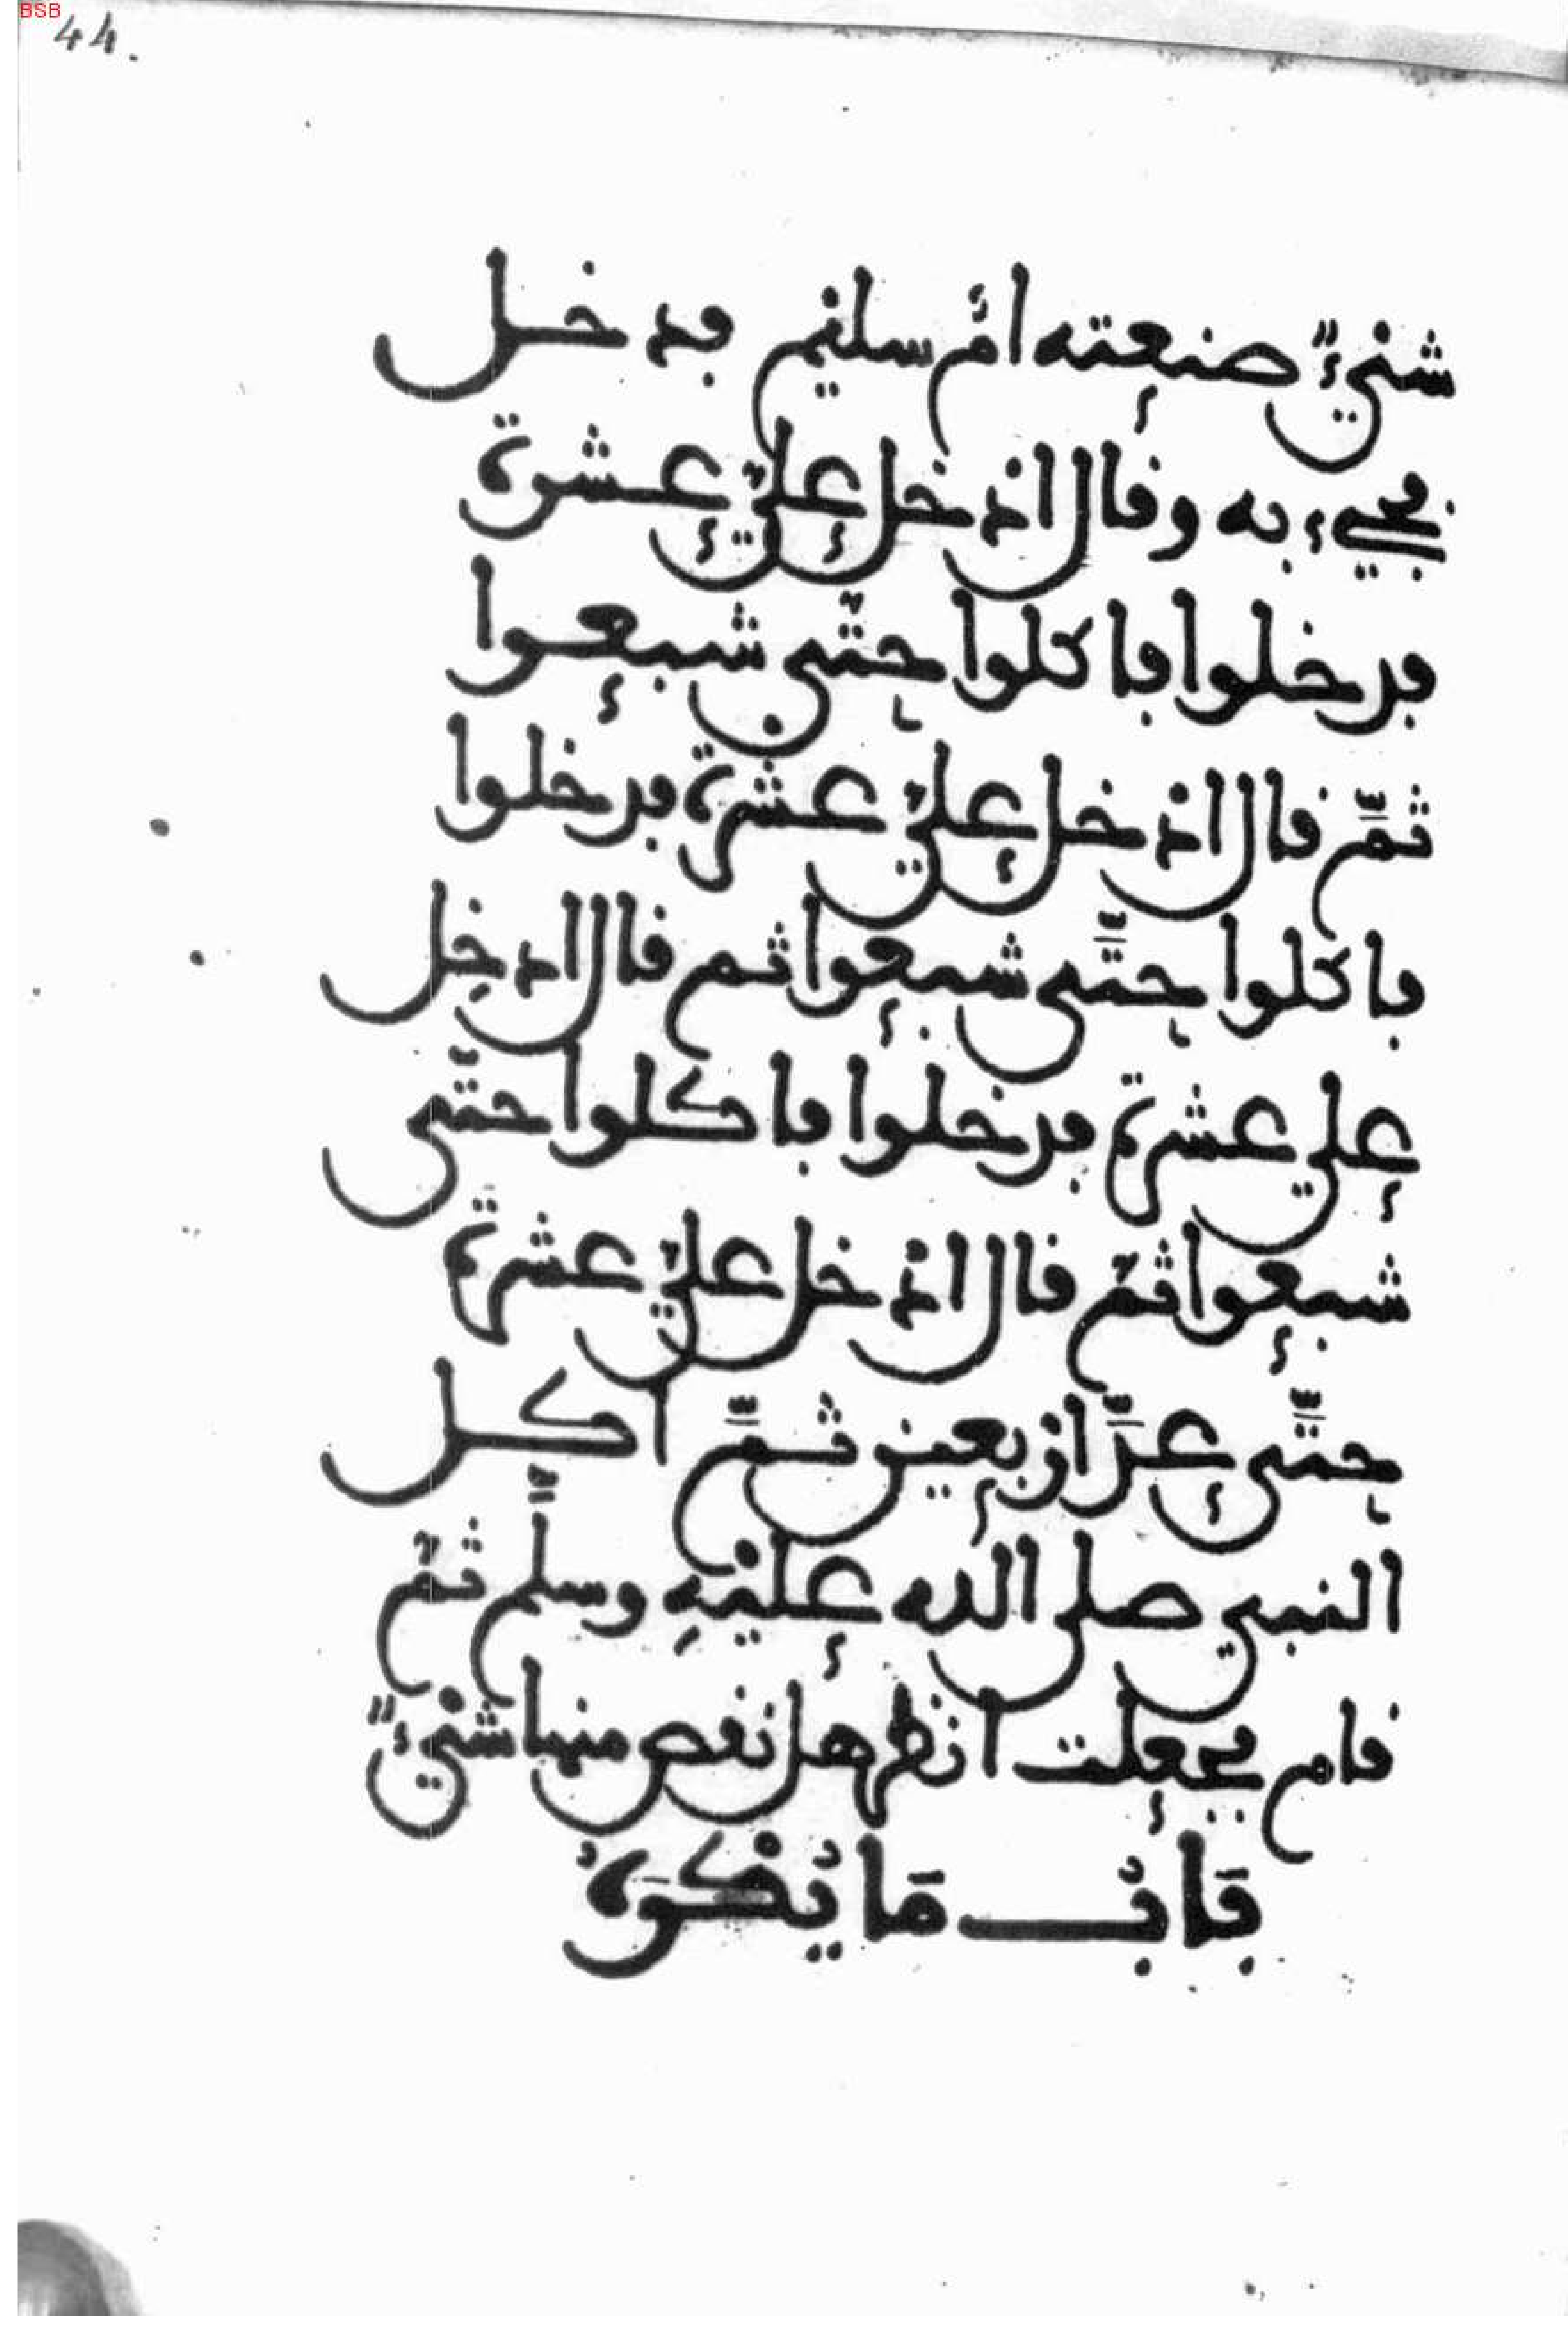 BSB
44.
شيءٌ صنعته امّ سليم فدخل
فجيء به وقال ادخل عليّ عشرة
فدخلوا فاكلوا حتّى شبعوا
ثمّ قال ادخل عليّ عشرة فدخلوا
فاكلوا حتَّى شبعوا ثم قال ادخِل
علي عشرة فدخلوا فاكلوا حتَّى
شبعوا ثمّ قال ادخل عليّ عشرة
حتَّى عدَّ اربعين ثمَّ اكل
النبي صلى الله عليْهِ وسلَّم ثمّ
قام فجعلت انظر هل نقص منها شيْءٌ
بَابُ مَا يُكْرَهُ